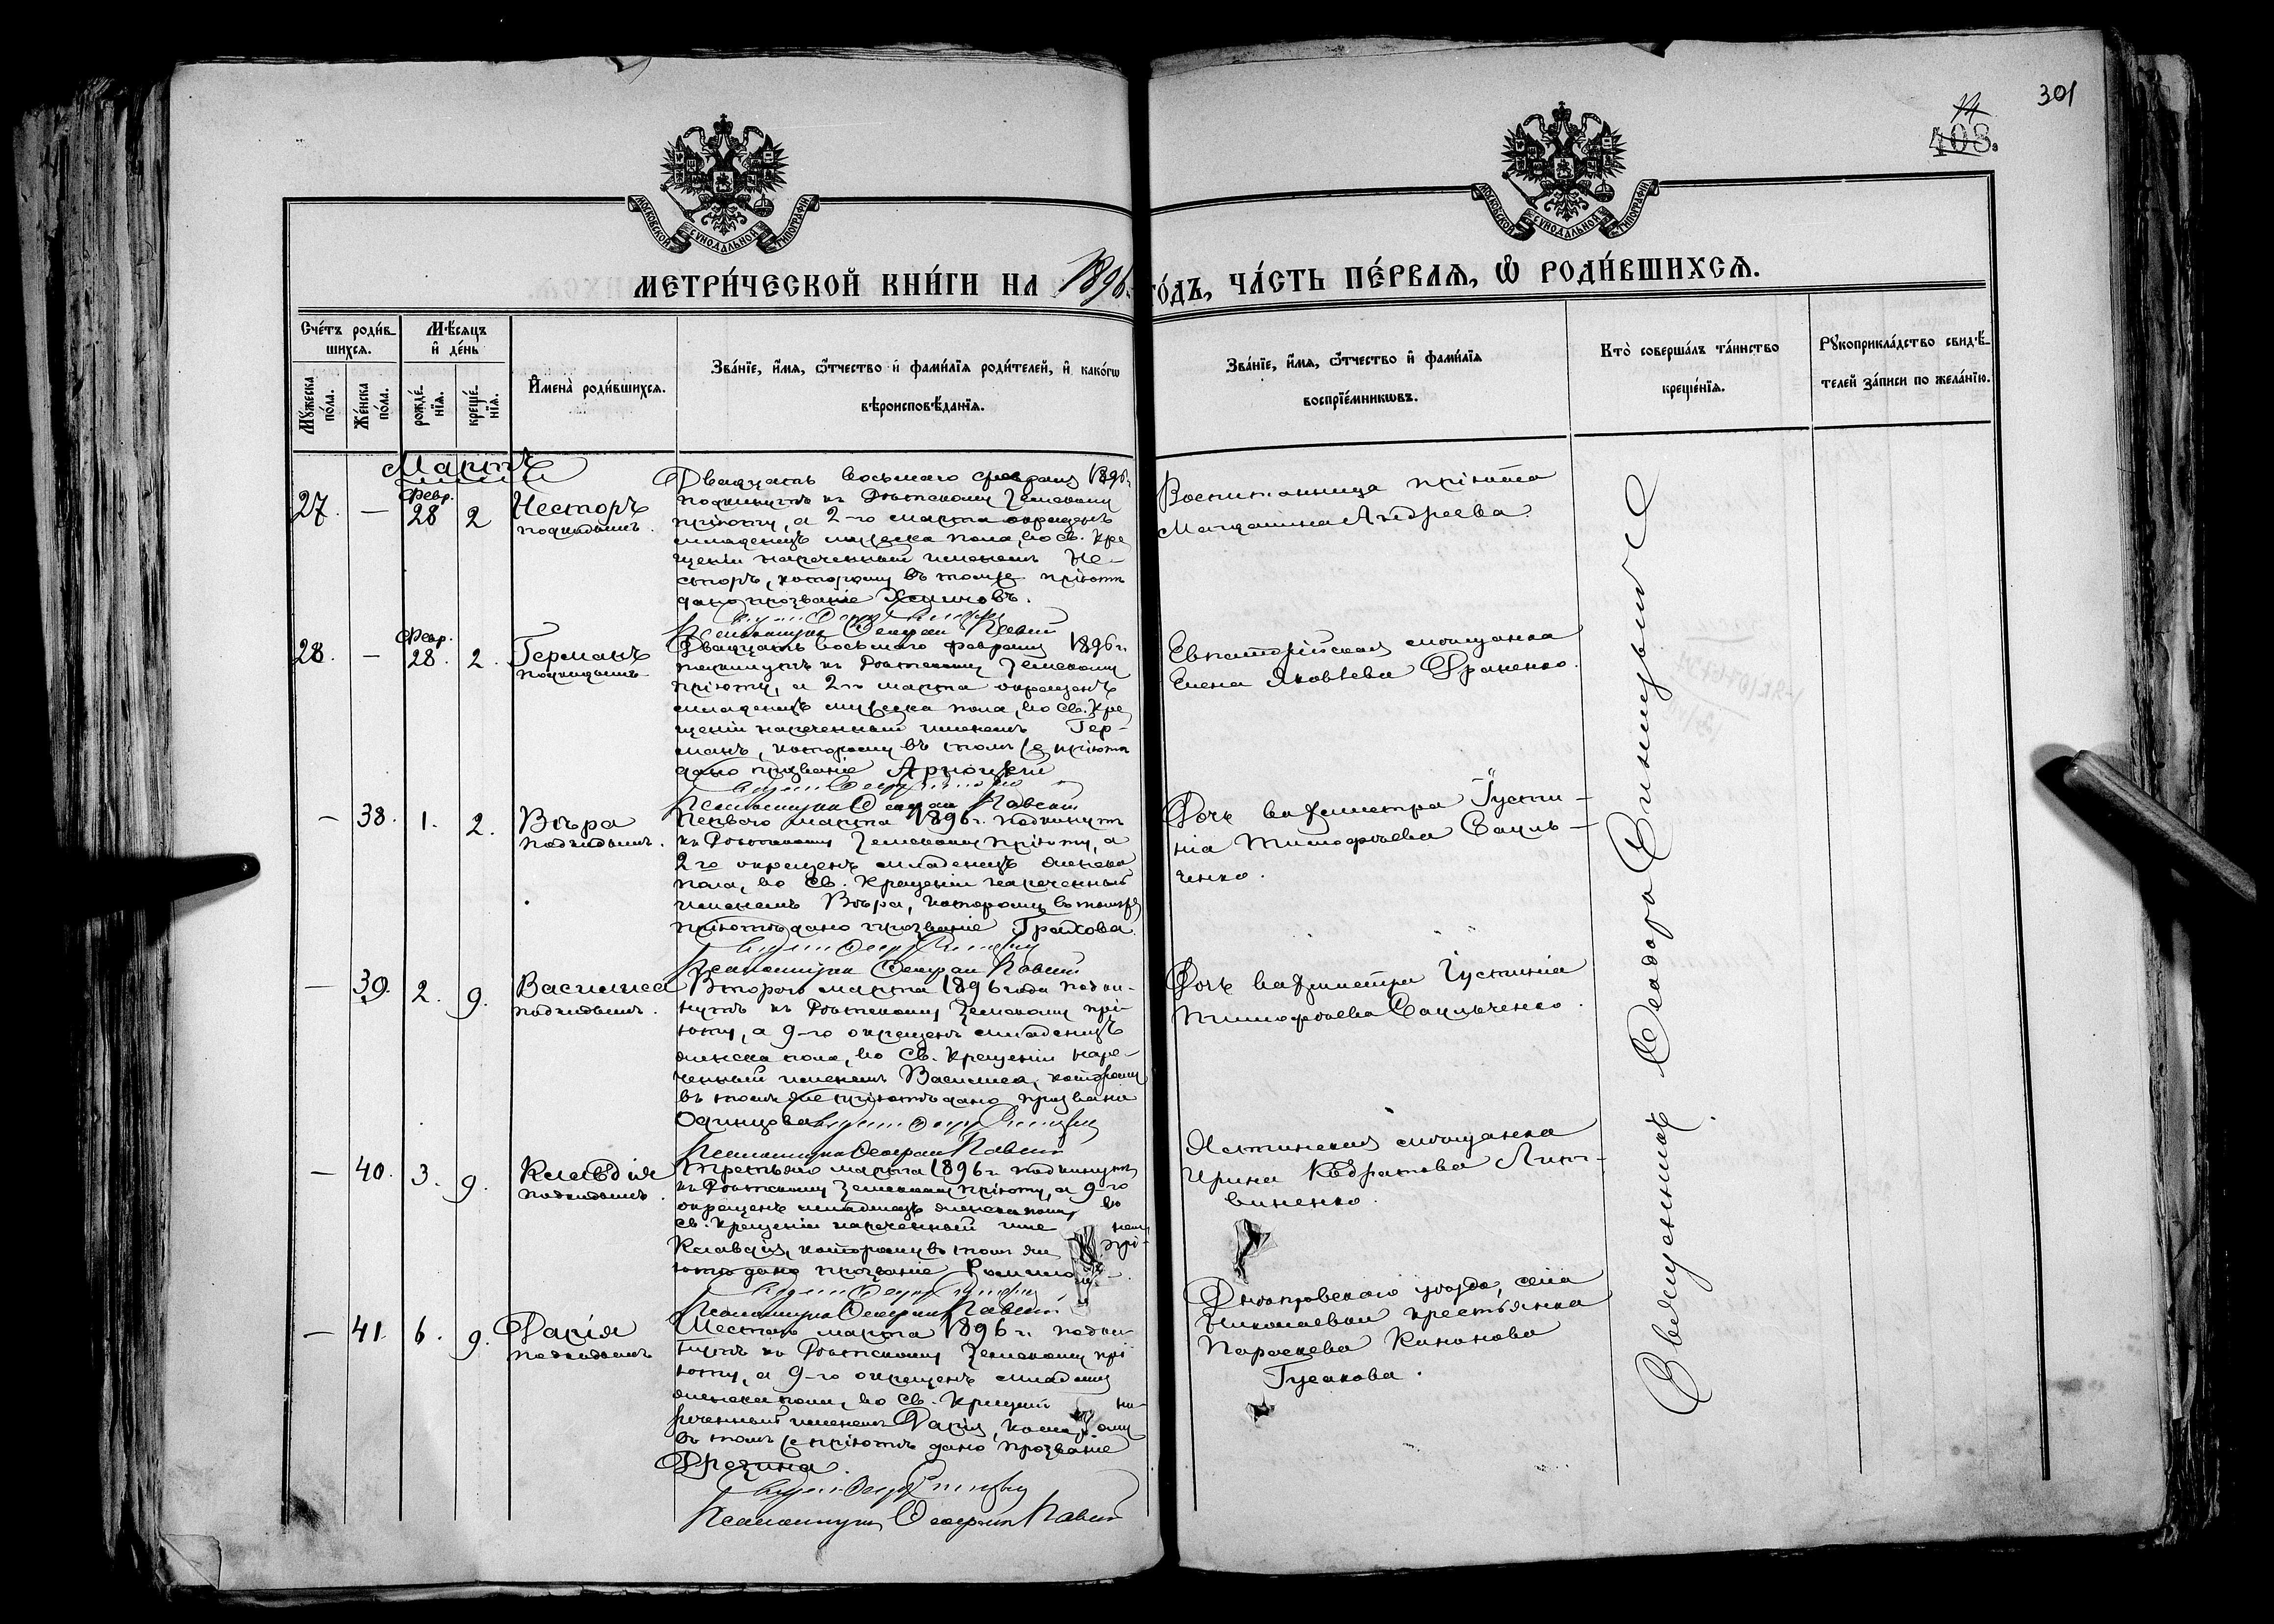 301
14
408.
МОСКОВСКОЙ СУНОДАЛЬНОЙ ТИПОГРАФІИ
МОСКОВСКОЙ СУНОДАЛЬНОЙ ТИПОГРАФІИ
МЕТРИ́ЧЕСКОЙ КНИ́ГИ НА 1896 ГО́ДЪ, ЧА́СТЬ ПЕ́РВАЯ, Ѡ РОДИ́ВШИХСЯ.
Сче́тъ роди́в-
шихся.
Мѣ́сяцъ
и де́нь
Му́жеска
по́ла.
Же́нска
по́ла.
рожде́-
нїя.
креще́-
нїя.
Имена̀ роди́вшихся.
Зва́нїе, и́мя, ѻ́тчество и фами́лїя роди́телей, и како́гѡ
вѣроисповѣ́данїя.
Зва́нїе, и́мя, ѻ́тчество и фами́лїя
воспрїе́мникѡвъ.
Кто̀ соверша́лъ та́инство
креще́нїя.
Рукоприкла́дство свидѣ́-
телей за́писи по жела́нїю.
Мартъ
27. — Февр. 28 2 Несторъ
подкидышъ.
Двадцать восьмого февраля 1896 г.
подкинутъ къ Земскому
пріюту, а 2-го марта окрещенъ
младенецъ мужеска пола, во св. Кре
щеніи нареченный именемъ Не-
сторъ, которому въ томъ же пріютѣ
дано прозваніе
Воспитанница пріюта
Магдалина Андреева.
28. — Февр. 28. 2. Германъ
подкидышъ
Двадцать восьмого февраля 1896 г.
подкинутъ къ Земскому
пріюту, а 2 го марта окрещенъ
младенецъ мужеска пола, во св. Кре
щеніи нареченный именемъ Гер-
манъ, которому въ томъ же пріютѣ
дано прозваніе
Псаломщикъ
Евпаторійская мѣщанка
Елена Яковлева
— 38. 1. 2. Вѣра
подкидышъ.
Перваго марта 1896 г. подкинутъ
къ Земскому пріюту, а
2 го окрещенъ младенецъ женска
пола, во Св. Крещеніи нареченный
именемъ Вѣра, которому въ томъ же
пріютѣ дано прозваніе
Псаломщикъ
Дочь вахмистра Густи-
нія Тимофѣева Сауль-
ченко.
— 39. 2. 9. Василиса
подкидышъ.
Второго марта 1896 года подки-
нутъ къ Земскому прі-
юту, а 9-го окрещенъ младенецъ
женска пола, во Св. Крещеніи наре-
ченный именемъ Василиса, которому
въ томъ же пріютѣ дано прозваніе
Одинцова
Псаломщикъ
Дочь вахмистра Густинія
Тимофѣева Саульченко.
— 40. 3. 9. Клавдія
подкидышъ.
Третьяго марта 1896 г. подкинутъ
къ Земскому пріюту, а 9-го
окрещенъ младенецъ женска пола, во
св. Крещеніи нареченный име немъ
Клавдія, которому въ томъ же прі-
ютѣ дано прозваніе
Псаломщикъ
мѣщанка
Ирина Кодратова Лит-
виненко.
— 41. 6. 9. Дарія
подкидышъ
Шестого марта 1896 г. подки-
нутъ къ Земскому прі
юту, а 9-го окрещенъ младенецъ
женска пола, во Св. Крещеніи на-
реченный именемъ Дарія, которому
въ томъ же пріютѣ дано прозваніе
Дрезина.
Псаломщикъ
Днѣпровскаго уѣзда, села
Николаевки крестьянка
Параскева Кинонова
Гусакова.
Священникъ